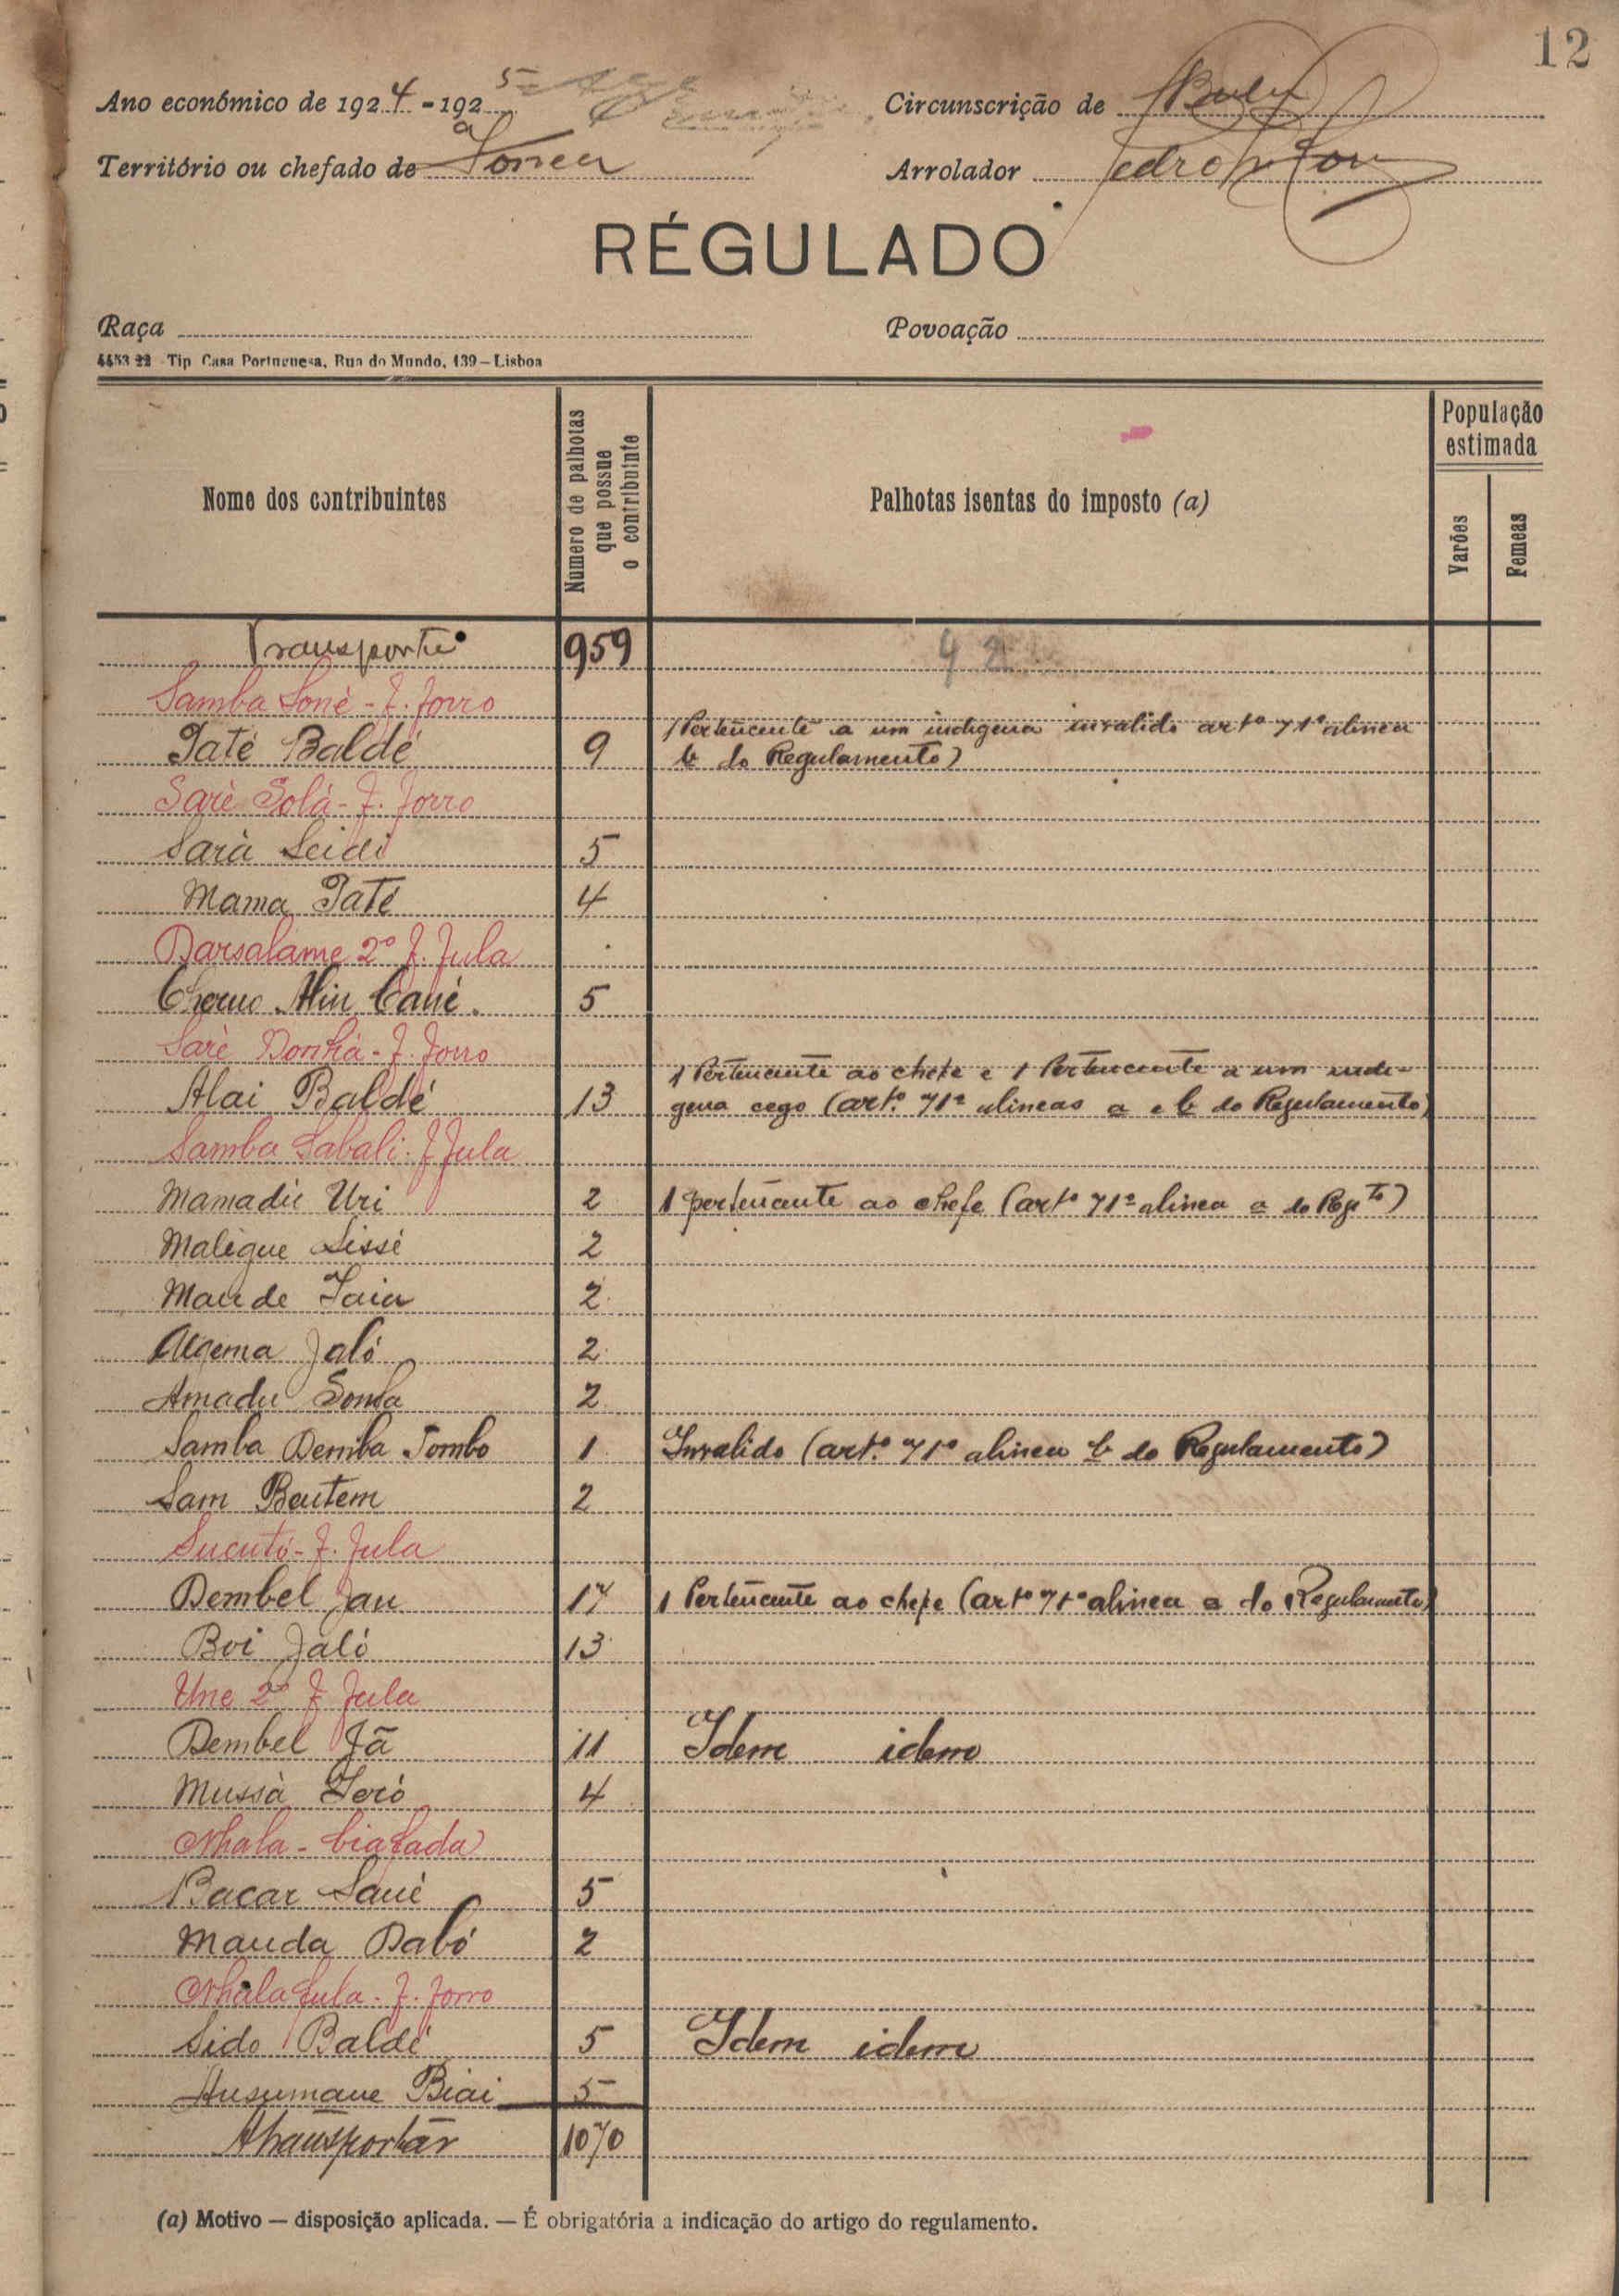 12
Ano económico de 1924-1925
Circunscrição de
Território ou chefado de
Arrolador Pedro
RÉGULADO
Raça
Povoação
4453 22 Tip Casa Portuguesa, Rua do Mundo, 139—Lisboa
Nome dos contribuintes
Numero de palhotas que possue o contribuinte
Palhotas isentas do imposto (a)
População estimada
Varões
Femeas
Transporte 959 42
Samba Soné - F. Forro
1 Pertencente a um indigena invalido artº 71º alinea
Paté Baldé 9 b do Regulamento)
Saré Solá - F. Forro
Sará Seidi 5
Mama Paté 4
Darsalame 2º F. Fula
Cherno Cané. 5
Saré - F. Forro
1 Pertencente ao chefe e 1 Pertencente a um indi-
Alai Baldé 13 gena cego (artº 71º alineas a e b do Regulamento)
Samba Sabali. F Fula
Mamadú Uri 2 1 pertencente ao chefe (artº 71º alinea a do Regto)
Malique Sissé 2
Maude 2
Jaló 2
Amadu Sonba 2
Samba Demba Tombo 1 Invalido (artº 71º alinea b do Regulamento)
Sam 2
Sucutó - F. Fula
Dembel Jau 17 1 Pertencente ao chefe (artº 71º alinea a do Regulamento)
Boi Jaló 13
Une 2º F Fula
Dembel Jã 11 Idem idem
Mussá 4
Nhala - biafada
Bacar Sané 5
Mauda Dabó 2
Nhala fula - F. Forro
Sido Baldé 5 Idem idem
Ansumane Biai 5
A transportar 1070
(a) Motivo — disposição aplicada. — É obrigatória a indicação do artigo do regulamento.